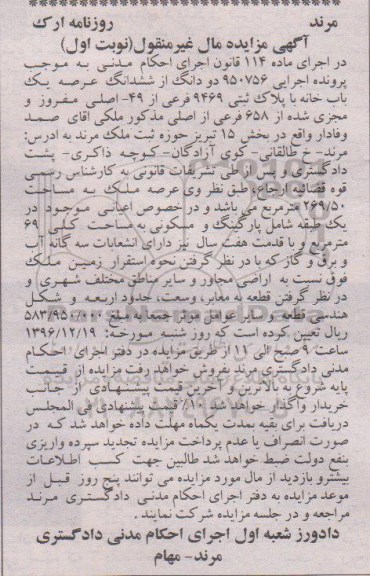 مرند روزنامه ارک
آگهی مزایده مال غیرمنقول(نوبت اول)
در اجرای ماده ۱۱۴ قانون اجرای احکام مدنی به موجب
پرونده اجرایی ۹۵۰۷۵۶ دو دانگ از ششدانگ عرصه یک
باب خانه با پلاک ثبتی ۹۴۶۹ فرعی از ۴۹-اصلی مفروز و
مجزی شده از ۶۵۸ فرعی از اصلی مذکور ملکی اقای صمد
وفادار واقع در بخش ۱۵ تبریز حوزه ثبت ملک مرند به ادرس:
مرند- خ طالقانی- کوی آزادگان- کوچه ذاکری- پشت
دادگستری را پس از طی تشریفات قانونی به کارشناس رسمی
قوه قضائیه ارجاع، طبق نظر وی عرصه ملک به مساحت
۲۶۹/۵۰ مترمربع می باشد و در خصوص اعیانی موجود در
یک طبقه شامل پارکینگ و مسکونی به مساحت کلی ۶۹
مترمربع و با قدمت هفت سال نیز دارای انشعابات سه گانه آب
و برق و گاز که با در نظر گرفتن نحوه استقرار زمین ملک
فوق نسبت به اراضی مجاور و سایر مناطق مختلف شهری و
در نظر گرفتن قطعه به معابر، وسعت، حدود اربعه و شکل
هندسی قطعه و سایر عوامل موثر جمعا به مبلغ ۵۸۳/۹۵۰/۰۰۰
ریال تعیین کرده است که روز شنبه مورخه: ۱۳۹۶/۱۲/۱۹
ساعت ۹ صبح الی ۱۱ از طریق مزایده در دفتر اجرای احکام
مدنی دادگستری مرند بفروش خواهد رفت مزایده از قیمت
پایه شروع به بالاترین و آخرین قیمت پیشنهادی از جانب
خریدار واگذار خواهد شد. ۱۰٪ قیمت پیشنهادی فی المجلس
دریافت برای بقیه بمدت یکماه مهلت داده خواهد شد که در
صورت انصراف یا عدم پرداخت مزایده تجدید سپرده واریزی
بنفع دولت ضبط خواهد شد طالبین جهت کسب اطلاعات
بیشترو بازدید از مال مورد مزایده می توانند پنج روز قبل از
موعد مزایده به دفتر اجرای احکام مدنی دادگستری مرند
مراجعه و در جلسه مزایده شرکت نمایند.
دادورز شعبه اول اجرای احکام مدنی دادگستری
مرند- مهام